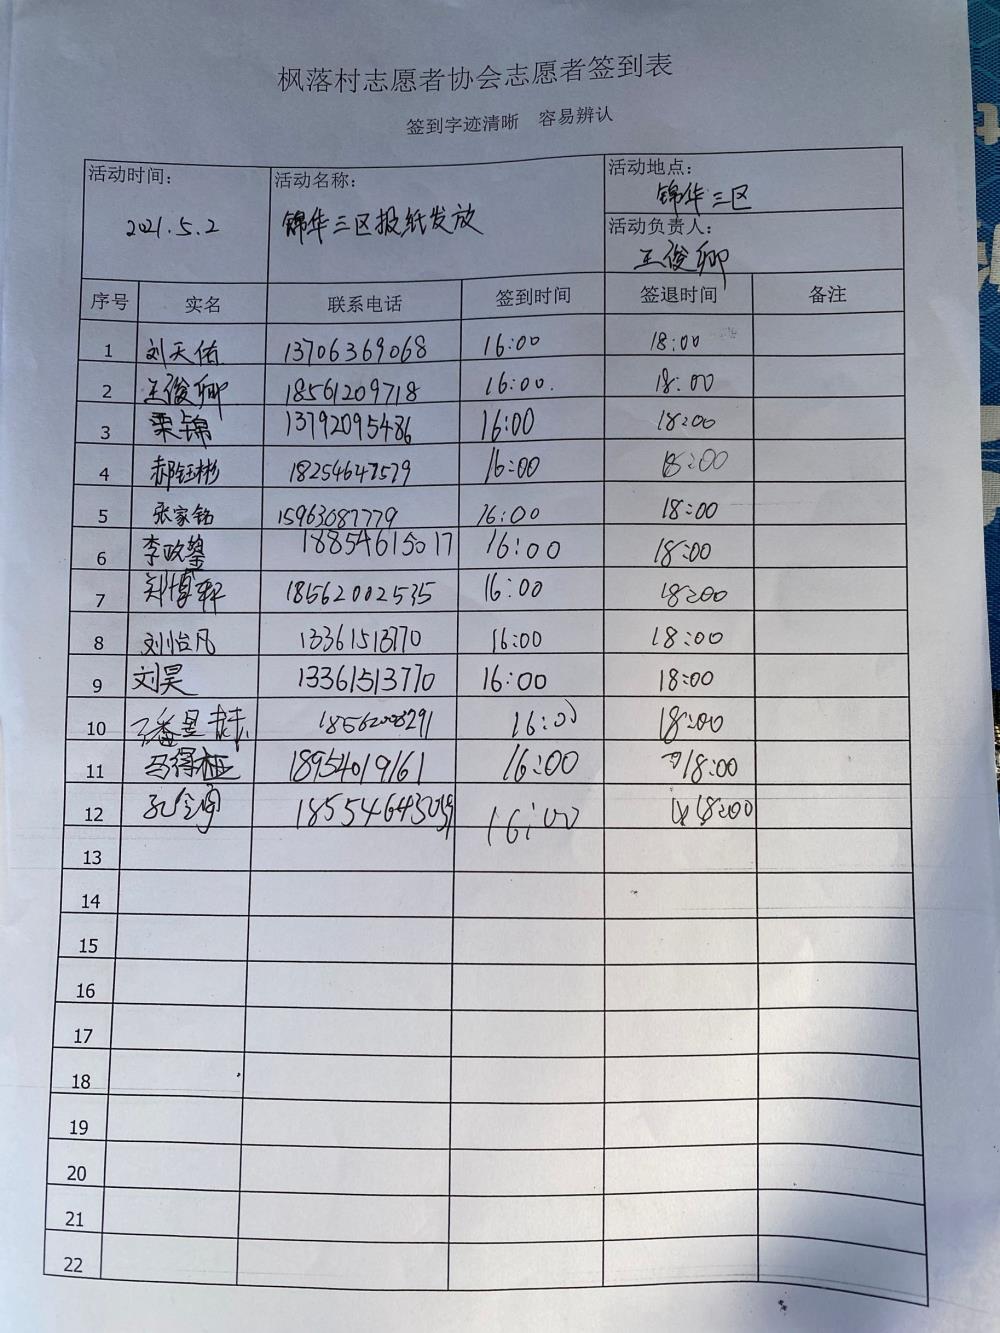 枫落村志愿者协会志愿者签到表
签到字迹清晰 容易辨认
活动时间： 2021.5.2
活动名称： 锦华三区报纸发放
活动地点： 锦华三区
活动负责人： 王俊卿
序号 实名 联系电话 签到时间 签退时间 备注
1 刘天佑 13706369068 16:00 18:00
2 王俊卿 18561209718 16:00. 18:00
3 栗锦 13792095486 16:00 18:00
4 郝钰彬 18254647579 16:00 18:00
5 张家铭 15963087779 16:00 18:00
6 李政鋆 18854615017 16:00 18:00
7 郑博轩 18562002535 16:00 18:00
8 刘怡凡 13361513770 16:00 18:00
9 刘昊 13361513770 16:00 18:00
10 16:00 18:00
11 18954019161 16:00 18:00
12 16:00 18:00
13
14
15
16
17
18
19
20
21
22